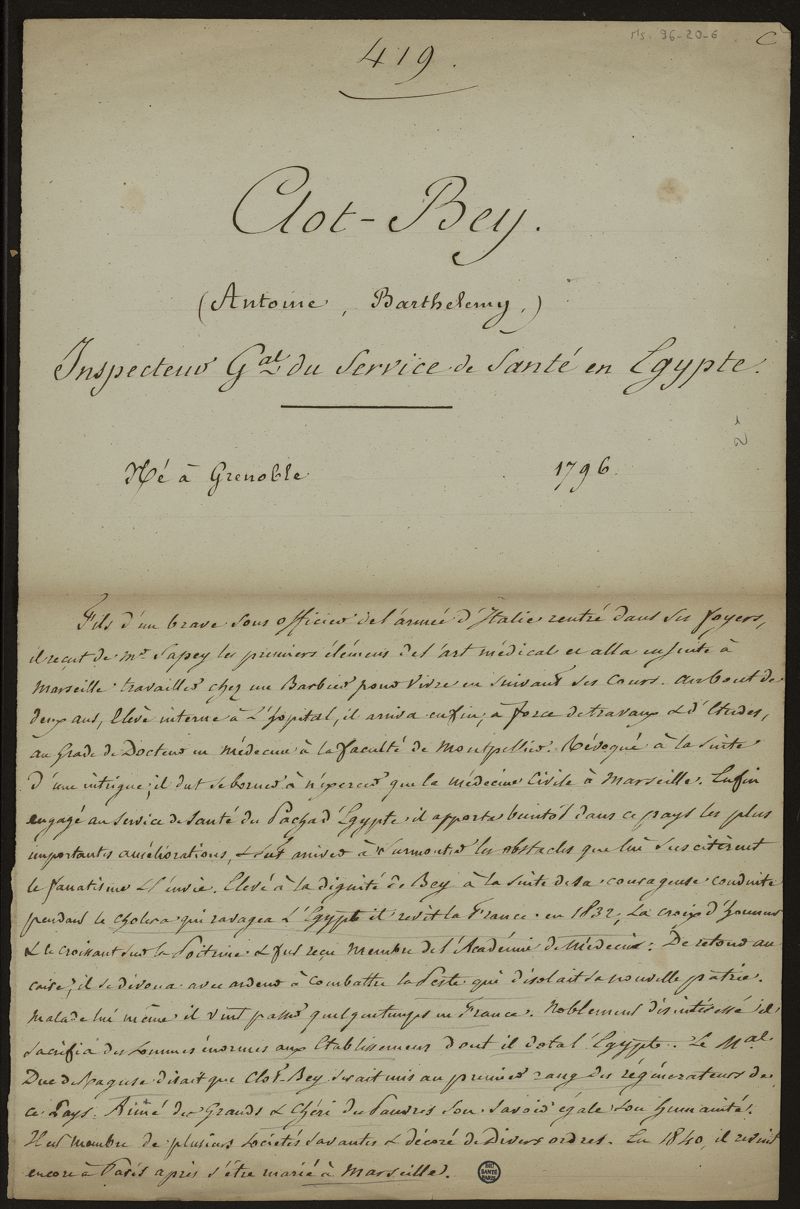 Ms. 96-20-6 C
419.
Clot-Bey.
(Antoine, Barthelemy,)
Inspecteur Gal du Service de Santé en Egypte.
2-
Né à Grenoble 1796.
Fils d'un brave sous officier de l'armée d'Italie rentré dans ses foyers,
il reçut de Mr Sapey les premiers élémens de l'art médical et alla ensuite à
Marseille travailler chez un Barbier pour vivre en suivant ses cours. Au bout de
deux ans, Elève interne à L'hopital, il arriva enfin, à force de travaux & d'Etudes,
au Grade de Docteur en Médecine à la faculté de Montpellier. Révoqué à la suite
d'une intrigue, il dut se borner à n'exercer que la médecine Civile à Marseille. Enfin
engagé au service de Santé du Pacha d'Egypte il apporta bientôt dans ce pays les plus
importantes améliorations, & sut arriver à surmonter les obstacles que lui suscitèrent
le fanatisme & l'envie. Elevé à la dignité de Bey à la suite de sa courageuse conduite
pendant le choléra qui ravagea L'Egypte il revit la France en 1832, La croix d'honneur
& le croissant sur la Poitrine & fut reçu membre de l'Académie de Médecine. De retour au
caire, il se dévoua avec ardeur à combattre la Peste qui désolait sa nouvelle patrie.
Malade lui même il vint passer quelque temps en France. Noblement désintéressé il
sacrifia des sommes énormes aux Etablissemens dont il dota l'Egypte. Le Mal
Duc de Raguse disait que Clot-Bey serait mis au premier rang des régénérateurs de
ce Pays. Aimé des Grands & Chéri des Pauvres son savoir égale son humanité.
Il est membre de plusieurs sociétés savantes & décoré de Divers ordres. En 1840, il revint
encore à Paris après s'être marié à Marseille.
BIU SANTE PARIS